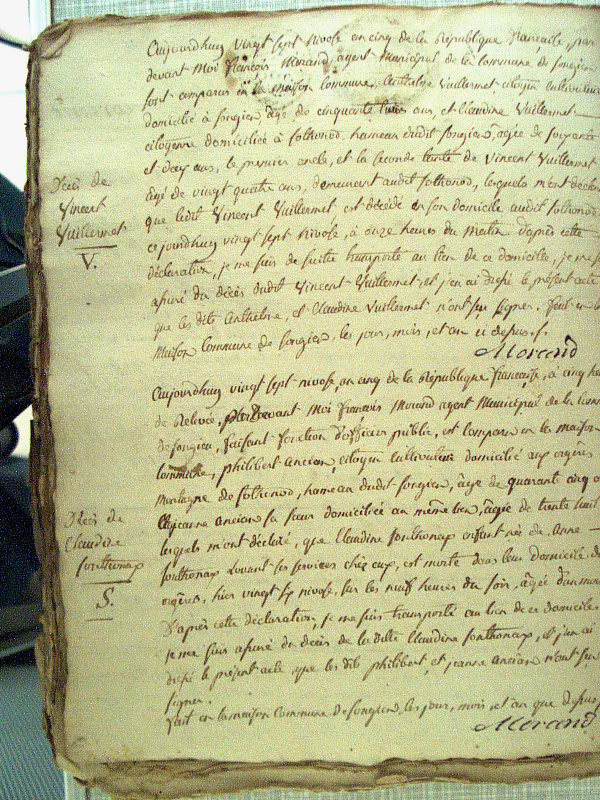 Aujourdhuy vingt sept nivose an cinq de la République française, par
devant moi françois Morand, agent Municipal de la commune de songieu
sont comparus en la maison commune, Anthelme Vuillermet citoyen cultivateur
domicilié à songieu, âgé de cinquante trois ans, et Claudine Vuillermet
citoyenne domiciliée à sothonod, hameau dudit songieu, agée de soixante
et deux ans, le premier oncle, et la seconde tante de Vincent Vuillermet
âgé de vingt quatre ans, demeurant audit sothonod, lesquels m'ont déclaré
que ledit Vincent Vuillermet est décédé en son domicile audit sothonod
cejourdhuy vingt sept nivose, à onze heures du matin d'après cette
déclaration, je me suis de suite transporté au lieu de ce domicile, je me
assuré du décès dudit Vincent Vuillermet et j'en ai dressé le présent acte
que les dits Anthelme, et Claudine Vuillermet n'ont su signer. fait en la
maison commune de songieu, les jour, mois, et an ci dessus.
Morand
Décès de
Vincent
Vuillermet
V.
Aujourdhuy vingt sept nivose, an cinq de la République française, à cinq heu
de Relevée, pardevant Moi françois Morand agent Municipal de la comm
de songieu, faisant fonction d'officier public, est comparu en la maison
commune, philibert ancian, citoyen cultivateur domicilié aux
Montagne de sothonod, hameau dudit songieu, age de quarante cinq
et jeanne ancian sa sœur domiciliée au même lieu, âgée de trente huit
lesquels m'ont déclaré, que Claudine fonthonax enfant née de Anne
fonthonax Louant ses services chez eux, est morte dans leur domicile
hier vingt six nivose, sur les neuf heures du soir, âgée d'un mois
D'après cette déclaration, je me suis transporté au lieu de ce domicile
je me suis assuré du décès de la dite Claudine fonthonax, et j'en ai
dressé le présent acte que les dits philibert et jeanne ancian n'ont su
signer.
fait en la maison commune de songieu, les jour, mois, et an que dessus
Morand
Décès de
Claudine
fonthonax
S.